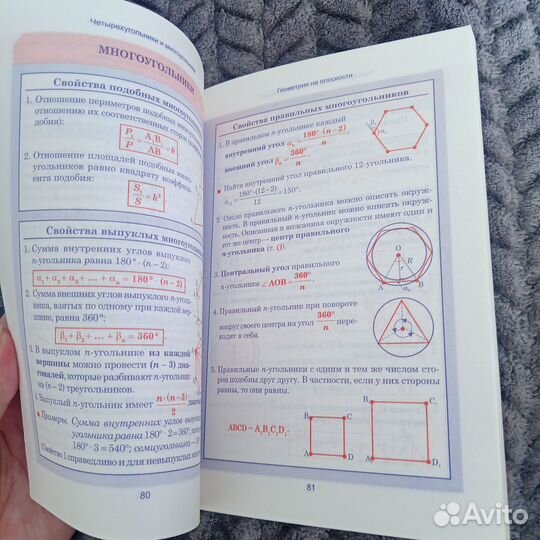 Четырехугольники и многоугольники
МНОГОУГОЛЬНИКИ
Свойства подобных многоугольников
1. Отношение периметров подобных многоуг
отношению их соответственных сторон
добия):
P₁/P = A₁B₁/AB = k
2. Отношение площадей подобных много-
угольников равно квадрату коэффици-
ента подобия:
S₁/S = k²
Свойства выпуклых многоуг
1. Сумма внутренних углов выпуклого
n-угольника равна 180°·(n–2):
α₁+α₂+α₃+…+αₙ=180°·(n–2)
2. Сумма внешних углов выпуклого n-уголь-
ника, взятых по одному при каждой вер-
шине, равна 360°:
β₁+β₂+…+βₙ=360°.
3. В выпуклом n-угольнике из каждой
вершины можно провести (n–3) диа-
гоналей, которые разбивают n-угольник
на (n–2) треугольников.
4. Выпуклый n-угольник имеет n·(n–3)/2
Примеры. Сумма внутренних углов выпук
угольника равна 180°·2=360°;
180°·3=540°; семиугольника
Свойство 1 справедливо и для невыпуклых
80
Геометрия на плоскости
Свойства правильных многоугольников
1. В правильном n-угольнике каждый
внутренний угол αₙ= 180°·(n–2)/n,
внешний угол βₙ= 360°/n.
βₙ
αₙ
Найти внутренний угол правильного 12-угольника.
α₁₂= 180°·(12–2)/12 =150°.
2. Около правильного n-угольника можно описать окруж-
ность. В правильный n-угольник можно вписать окруж-
ность. Описанная и вписанная окружности имеют один и
тот же центр — центр правильного
n-угольника (т. O).
O
R
r
A
B
3. Центральный угол правильного
n-угольника ∠AOB = 360°/n.
4. Правильный n-угольник при повороте
вокруг своего центра на угол 360°/n пере-
ходит в себя.
5. Правильные n-угольники с одним и тем же числом сто-
рон подобны друг другу. В частности, если у них стороны
равны, то они равны.
B C
B₁ C₁
ABCD ~ A₁B₁C₁D₁.
A D
A₁ D₁
81
Avito